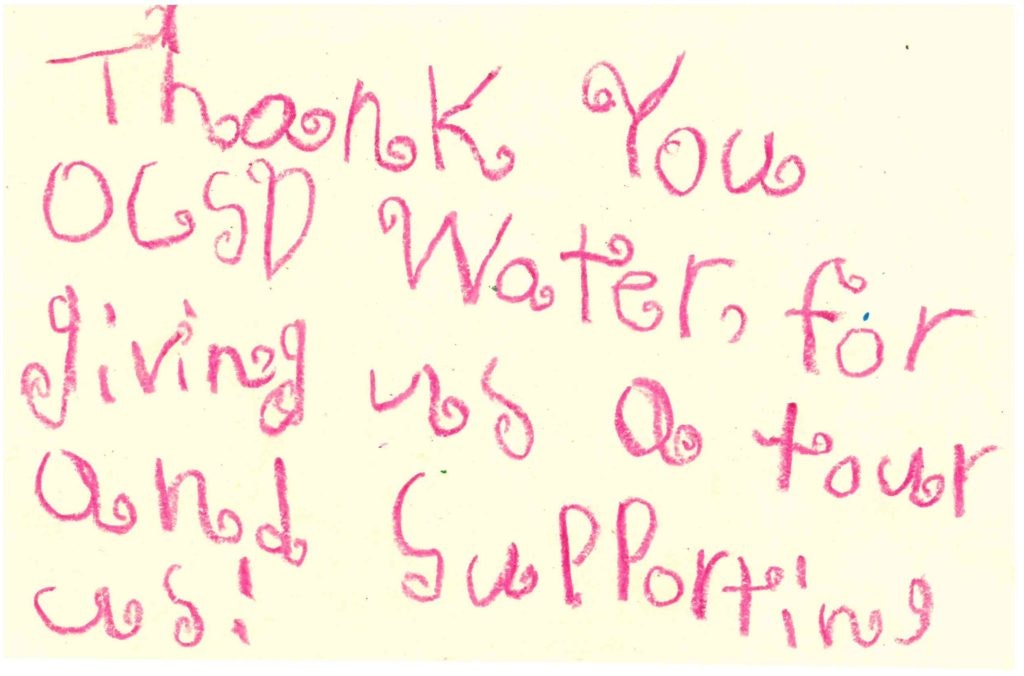 Thank You
OLSD Water, for
giving us a tour
and Supporting
us!